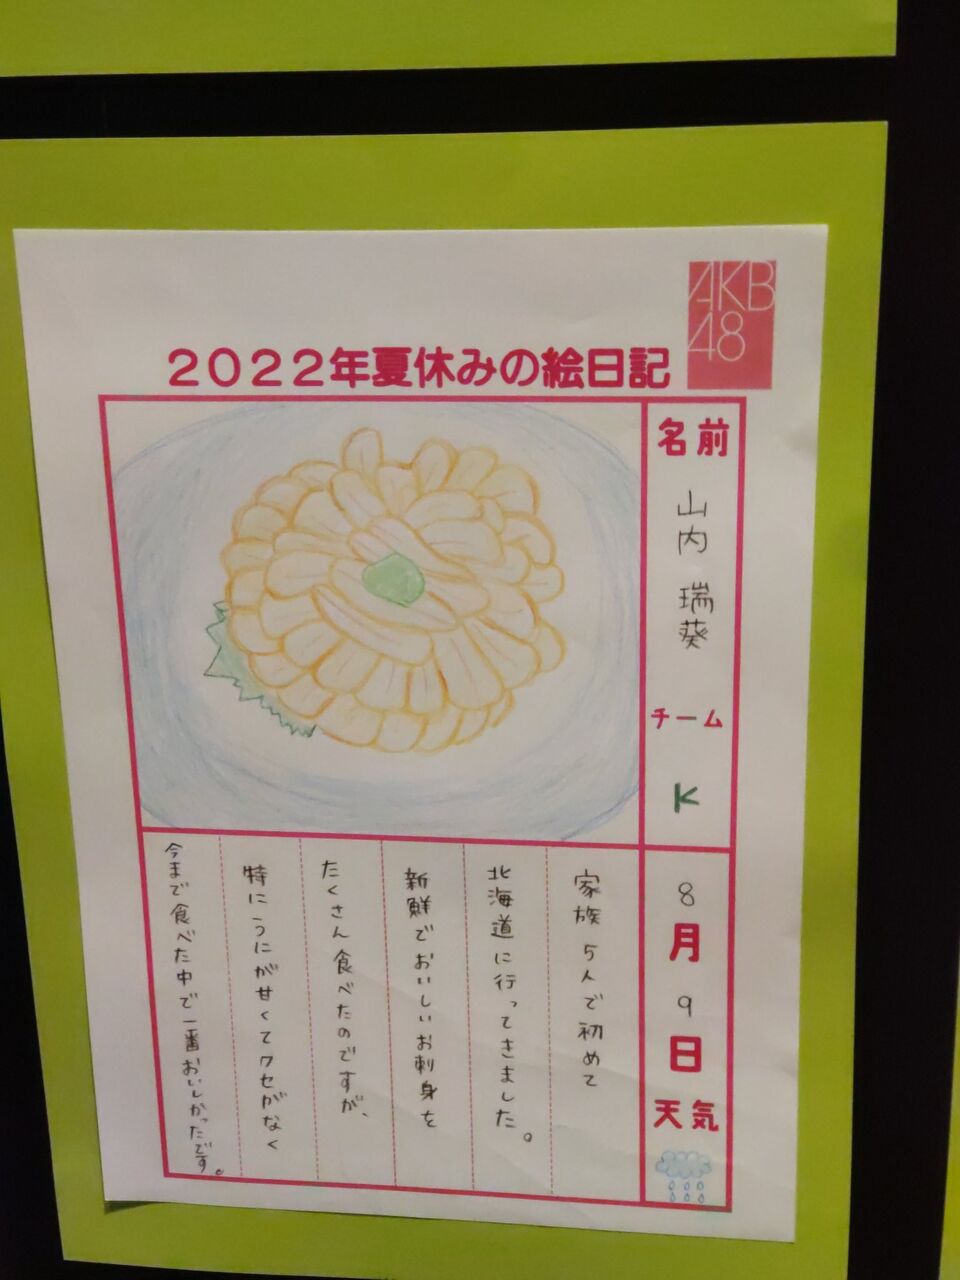 AKB
48
2022年夏休みの絵日記
名前
山内 瑞葵
チーム
K
8
月
9
日
天気
家族5人で初めて
北海道に行ってきました。
新鮮でおいしいお刺身を
たくさん食べたのですが、
特にうにが甘くてクセがなく
今まで食べた中で一番おいしかったです。